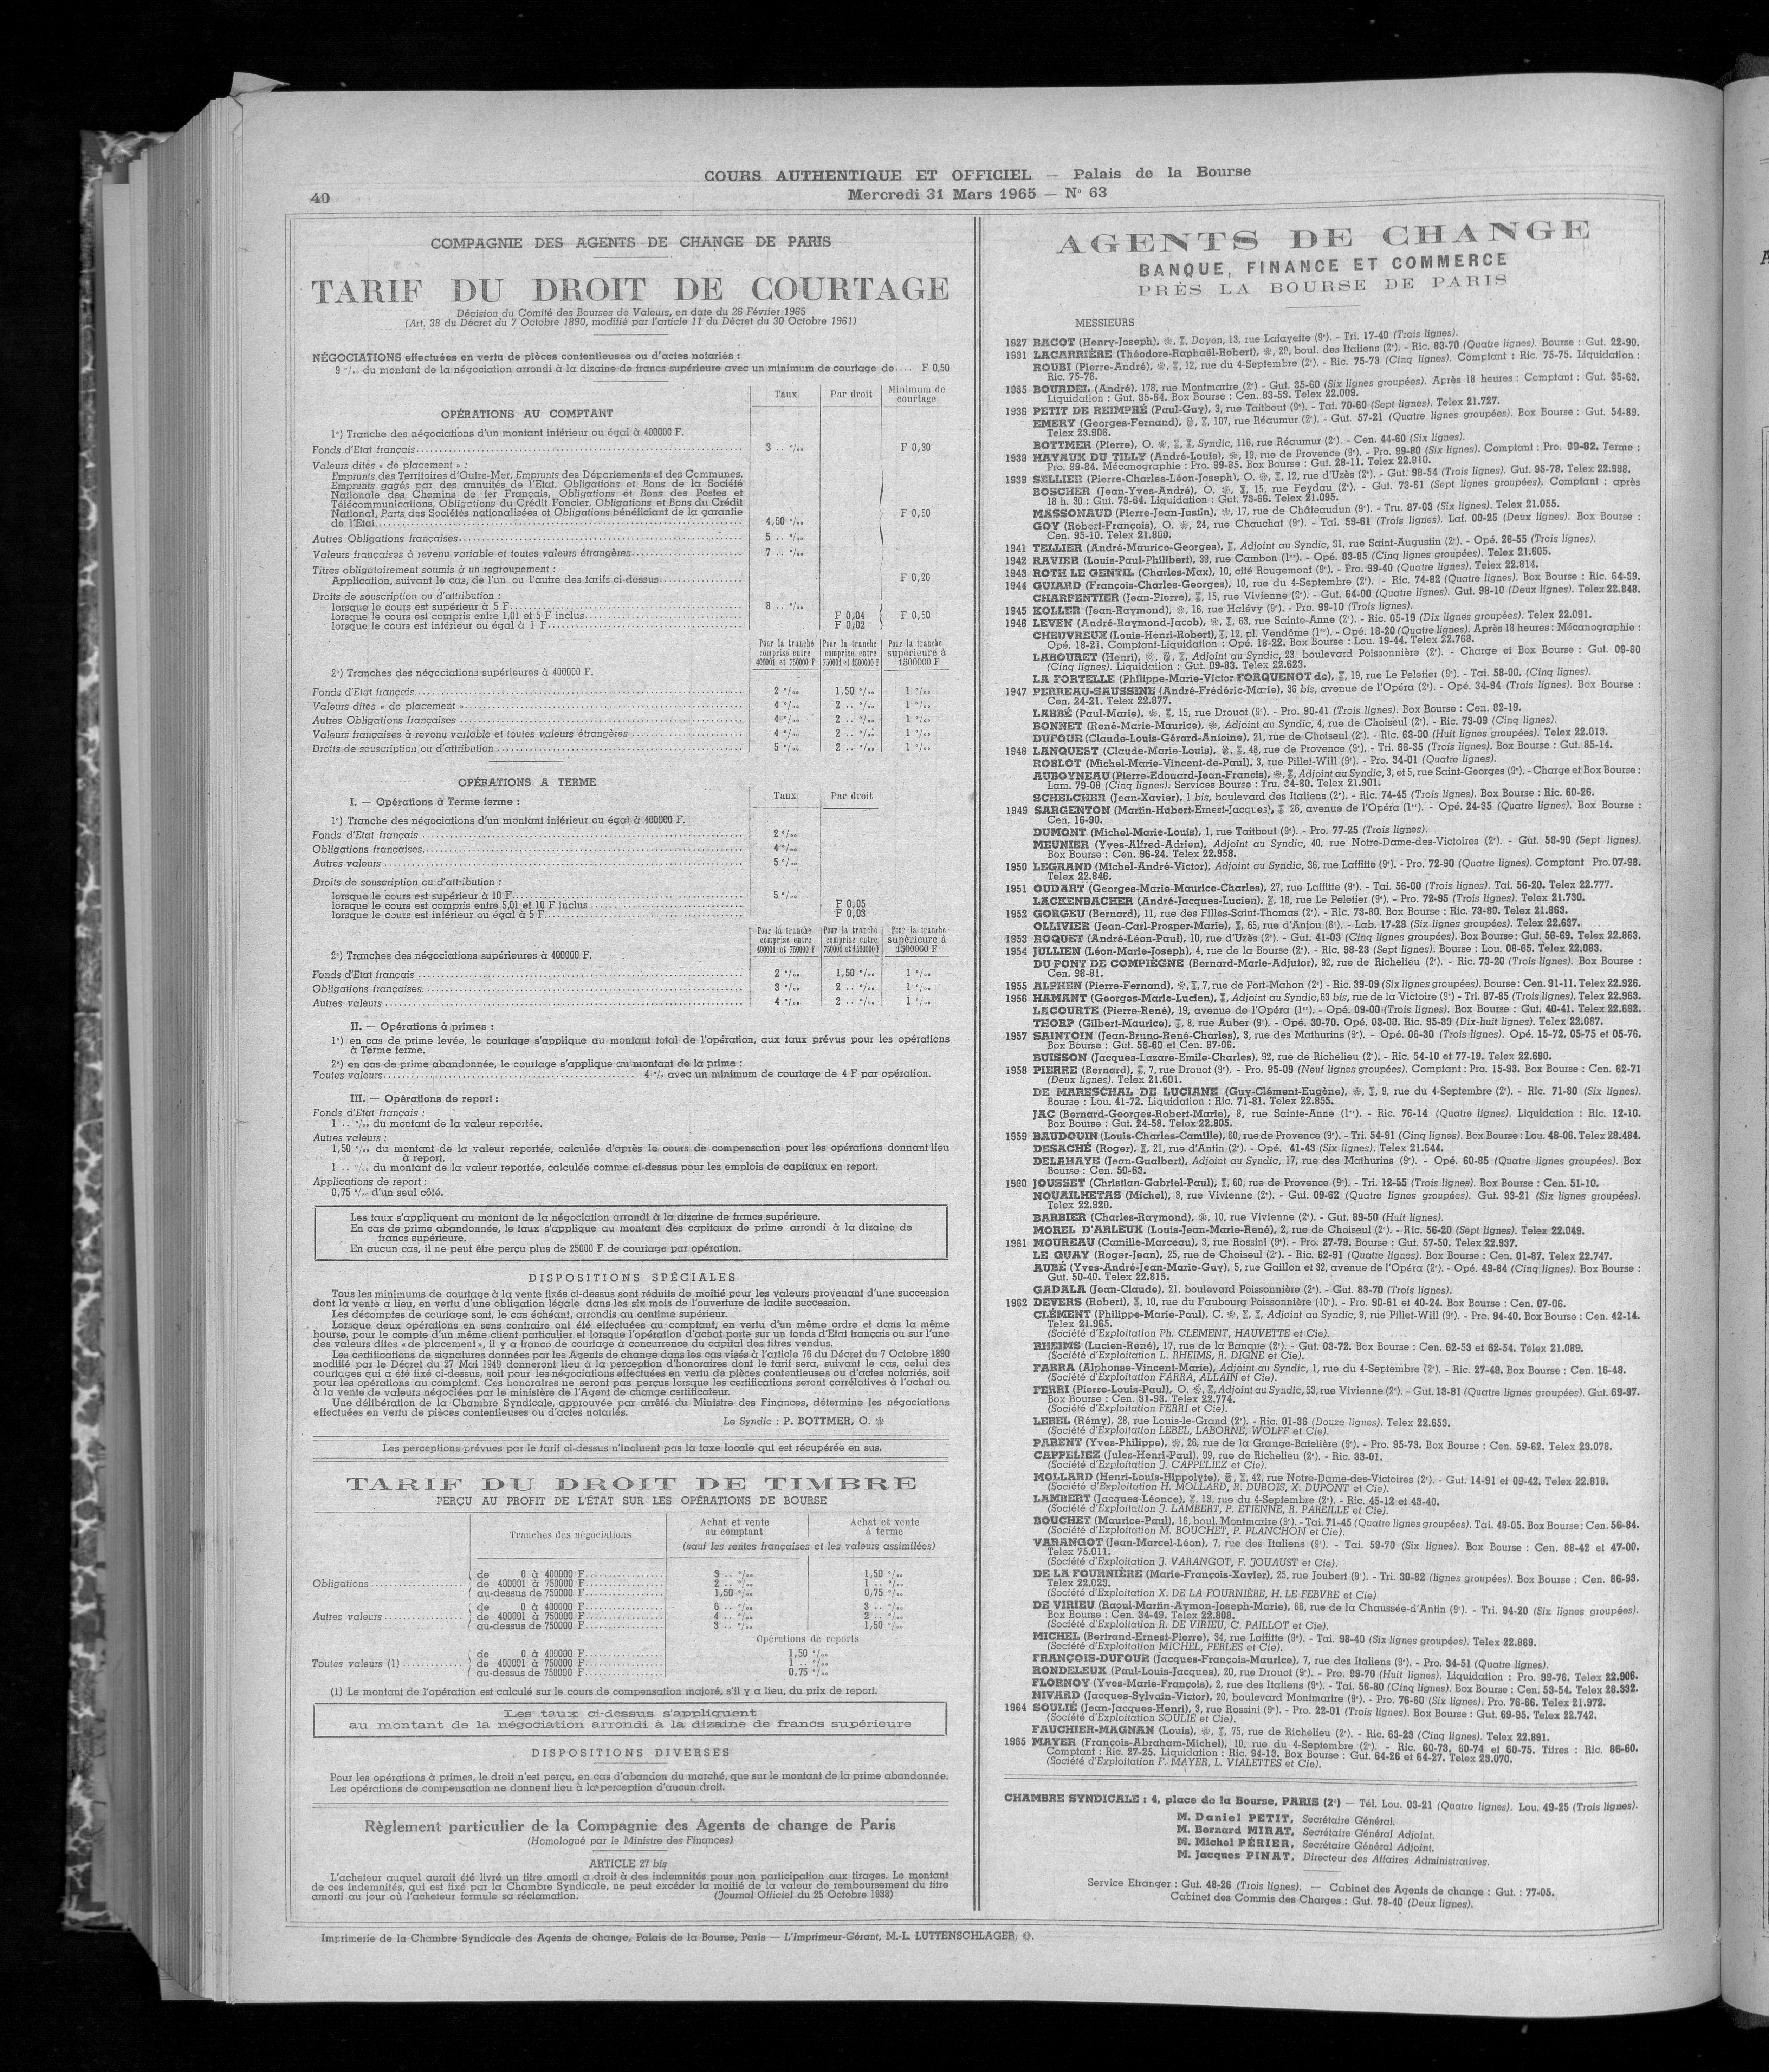 COURS AUTHENTIQUE ET OFFICIEL — Palais de la Bourse
40
Mercredi 31 Mars 1965 — N° 63
COMPAGNIE DES AGENTS DE CHANGE DE PARIS
TARIF DU DROIT DE COURTAGE
Décision du Comité des Bourses de Valeurs, en date du 26 Février 1965
(Art. 38 du Décret du 7 Octobre 1890, modifié par l'article 11 du Décret du 30 Octobre 1961)
NÉGOCIATIONS effectuées en vertu de pièces contentieuses ou d'actes notariés :
9 °/oo du montant de la négociation arrondi à la dizaine de francs supérieure avec un minimum de courtage de.... F 0,50
Taux Par droit Minimum de courtage
OPÉRATIONS AU COMPTANT
1°) Tranche des négociations d'un montant inférieur ou égal à 400000 F.
Fonds d'Etat français 3 .. °/oo F 0,30
Valeurs dites « de placement » :
Emprunts des Territoires d'Outre-Mer, Emprunts des Départements et des Communes,
Emprunts gagés par des annuités de l'Etat, Obligations et Bons de la Société
Nationale des Chemins de fer Français, Obligations et Bons des Postes et
Télécommunications, Obligations du Crédit Foncier, Obligations et Bons du Crédit
National, Parts des Sociétés nationalisées et Obligations bénéficiant de la garantie
de l'Etat 4,50 °/oo F 0,50
Autres Obligations françaises 5 .. °/oo
Valeurs françaises à revenu variable et toutes valeurs étrangères 7 .. °/oo
Titres obligatoirement soumis à un regroupement :
Application, suivant le cas, de l'un ou l'autre des tarifs ci-dessus F 0,20
Droits de souscription ou d'attribution :
lorsque le cours est supérieur à 5 F 8 .. °/oo
lorsque le cours est compris entre 1,01 et 5 F inclus F 0,04 F 0,50
lorsque le cours est inférieur ou égal à 1 F F 0,02
Pour la tranche comprise entre 400001 et 750000 F Pour la tranche comprise entre 750001 et 1500000 F Pour la tranche supérieure à 1500000 F
2°) Tranches des négociations supérieures à 400000 F.
Fonds d'Etat français 2 °/oo 1,50 °/oo 1 °/oo
Valeurs dites « de placement » 4 °/oo 2 .. °/oo 1 °/oo
Autres Obligations françaises 4 °/oo 2 .. °/oo 1 °/oo
Valeurs françaises à revenu variable et toutes valeurs étrangères 4 °/oo 2 .. °/oo 1 °/oo
Droits de souscription ou d'attribution 5 °/oo 2 .. °/oo 1 °/oo
OPÉRATIONS A TERME
Taux Par droit
I. — Opérations à Terme ferme :
1°) Tranche des négociations d'un montant inférieur ou égal à 400000 F.
Fonds d'Etat français 2 °/oo
Obligations françaises 4 °/oo
Autres valeurs 5 °/oo
Droits de souscription ou d'attribution :
lorsque le cours est supérieur à 10 F 5 °/oo
lorsque le cours est compris entre 5,01 et 10 F inclus F 0,05
lorsque le cours est inférieur ou égal à 5 F F 0,03
Pour la tranche comprise entre 400001 et 750000 F Pour la tranche comprise entre 750001 et 1500000 F Pour la tranche supérieure à 1500000 F
2°) Tranches des négociations supérieures à 400000 F.
Fonds d'Etat français 2 °/oo 1,50 °/oo 1 °/oo
Obligations françaises 3 °/oo 2 .. °/oo 1 °/oo
Autres valeurs 4 °/oo 2 .. °/oo 1 °/oo
II. — Opérations à primes :
1°) en cas de prime levée, le courtage s'applique au montant total de l'opération, aux taux prévus pour les opérations
à Terme ferme.
2°) en cas de prime abandonnée, le courtage s'applique au montant de la prime :
Toutes valeurs 4 °/o avec un minimum de courtage de 4 F par opération.
III. — Opérations de report :
Fonds d'Etat français :
1 .. °/oo du montant de la valeur reportée.
Autres valeurs :
1,50 °/oo du montant de la valeur reportée, calculée d'après le cours de compensation pour les opérations donnant lieu
à report.
1 .. °/oo du montant de la valeur reportée, calculée comme ci-dessus pour les emplois de capitaux en report.
Applications de report :
0,75 °/oo d'un seul côté.
Les taux s'appliquent au montant de la négociation arrondi à la dizaine de francs supérieure.
En cas de prime abandonnée, le taux s'applique au montant des capitaux de prime arrondi à la dizaine de
francs supérieure.
En aucun cas, il ne peut être perçu plus de 25000 F de courtage par opération.
DISPOSITIONS SPÉCIALES
Tous les minimums de courtage à la vente fixés ci-dessus sont réduits de moitié pour les valeurs provenant d'une succession
dont la vente a lieu, en vertu d'une obligation légale dans les six mois de l'ouverture de ladite succession.
Les décomptes de courtage sont, le cas échéant, arrondis au centime supérieur.
Lorsque deux opérations en sens contraire ont été effectuées au comptant, en vertu d'un même ordre et dans la même
bourse, pour le compte d'un même client particulier et lorsque l'opération d'achat porte sur un fonds d'Etat français ou sur l'une
des valeurs dites « de placement », il y a franco de courtage à concurrence du capital des titres vendus.
Les certifications de signatures données par les Agents de change dans les cas visés à l'article 76 du Décret du 7 Octobre 1890
modifié par le Décret du 27 Mai 1949 donneront lieu à la perception d'honoraires dont le tarif sera, suivant le cas, celui des
courtages qui a été fixé ci-dessus, soit pour les négociations effectuées en vertu de pièces contentieuses ou d'actes notariés, soit
pour les opérations au comptant. Ces honoraires ne seront pas perçus lorsque les certifications seront corrélatives à l'achat ou
à la vente de valeurs négociées par le ministère de l'Agent de change certificateur.
Une délibération de la Chambre Syndicale, approuvée par arrêté du Ministre des Finances, détermine les négociations
effectuées en vertu de pièces contentieuses ou d'actes notariés.
Le Syndic : P. BOTTMER, O. ※
Les perceptions prévues par le tarif ci-dessus n'incluent pas la taxe locale qui est récupérée en sus.
TARIF DU DROIT DE TIMBRE
PERÇU AU PROFIT DE L'ÉTAT SUR LES OPÉRATIONS DE BOURSE
Tranches des négociations Achat et vente au comptant Achat et vente à terme
(sauf les rentes françaises et les valeurs assimilées)
de 0 à 400000 F 3 .. °/oo 1,50 °/oo
Obligations de 400001 à 750000 F 2 .. °/oo 1 .. °/oo
au-dessus de 750000 F 1,50 °/oo 0,75 °/oo
de 0 à 400000 F 6 .. °/oo 3 .. °/oo
Autres valeurs de 400001 à 750000 F 4 .. °/oo 2 .. °/oo
au-dessus de 750000 F 3 .. °/oo 1,50 °/oo
Opérations de reports
de 0 à 400000 F 1,50 °/oo
Toutes valeurs (1) de 400001 à 750000 F 1 .. °/oo
au-dessus de 750000 F 0,75 °/oo
(1) Le montant de l'opération est calculé sur le cours de compensation majoré, s'il y a lieu, du prix de report.
Les taux ci-dessus s'appliquent
au montant de la négociation arrondi à la dizaine de francs supérieure
DISPOSITIONS DIVERSES
Pour les opérations à primes, le droit n'est perçu, en cas d'abandon du marché, que sur le montant de la prime abandonnée.
Les opérations de compensation ne donnent lieu à la perception d'aucun droit.
Règlement particulier de la Compagnie des Agents de change de Paris
(Homologué par le Ministre des Finances)
ARTICLE 27 bis
L'acheteur auquel aurait été livré un titre amorti a droit à des indemnités pour non participation aux tirages. Le montant
de ces indemnités, qui est fixé par la Chambre Syndicale, ne peut excéder la moitié de la valeur de remboursement du titre
amorti au jour où l'acheteur formule sa réclamation. (Journal Officiel du 25 Octobre 1938)
AGENTS DE CHANGE
BANQUE, FINANCE ET COMMERCE
PRÈS LA BOURSE DE PARIS
MESSIEURS
1927 BACOT (Henry-Joseph), Doyen, 13, rue Lafayette (9e). - Tri. 17-40 (Trois lignes).
1931 LACARRIÈRE (Théodore-Raphaël-Robert), 29, boul. des Italiens (2e). - Ric. 83-70 (Quatre lignes). Bourse : Gut. 22-90.
ROUBI (Pierre-André), 12, rue du 4-Septembre (2e). - Ric. 75-73 (Cinq lignes). Comptant : Ric. 75-75. Liquidation :
Ric. 75-76.
1935 BOURDEL (André), 178, rue Montmartre (2e) - Gut. 35-60 (Six lignes groupées). Après 18 heures : Comptant : Gut. 35-63.
Liquidation : Gut. 35-64. Box Bourse : Cen. 83-53. Telex 22.009.
1936 PETIT DE REIMPRÉ (Paul-Guy), 3, rue Taitbout (9e). - Tai. 70-60 (Sept lignes). Telex 21.727.
EMERY (Georges-Fernand), 107, rue Réaumur (2e). - Gut. 57-21 (Quatre lignes groupées). Box Bourse : Gut. 54-89.
Telex 23.906.
BOTTMER (Pierre), O. Syndic, 116, rue Réaumur (2e). - Cen. 44-60 (Six lignes).
1938 HAYAUX DU TILLY (André-Louis), 19, rue de Provence (9e). - Pro. 99-80 (Six lignes). Comptant : Pro. 99-82. Terme :
Pro. 99-84. Mécanographie : Pro. 99-85. Box Bourse : Gut. 28-11. Telex 22.810.
1939 SELLIER (Pierre-Charles-Léon-Joseph), O. 12, rue d'Uzès (2e). - Gut. 98-54 (Trois lignes). Gut. 95-78. Telex 22.998.
BOSCHER (Jean-Yves-André), O. 15, rue Feydau (2e). - Gut. 73-61 (Sept lignes groupées). Comptant : après
18 h. 30 : Gut. 73-64. Liquidation : Gut. 73-66. Telex 21.095.
MASSONAUD (Pierre-Jean-Justin), 17, rue de Châteaudun (9e). - Tru. 87-03 (Six lignes). Telex 21.055.
GOY (Robert-François), O. 24, rue Chauchat (9e). - Tai. 59-61 (Trois lignes). Laf. 00-25 (Deux lignes). Box Bourse :
Cen. 95-10. Telex 21.800.
1941 TELLIER (André-Maurice-Georges), Adjoint au Syndic, 31, rue Saint-Augustin (2e). - Opé. 26-55 (Trois lignes).
1942 RAVIER (Louis-Paul-Philibert), 39, rue Cambon (1er). - Opé. 83-85 (Cinq lignes groupées). Telex 21.605.
1943 ROTH LE GENTIL (Charles-Max), 10, cité Rougemont (9e). - Pro. 99-40 (Quatre lignes). Telex 22.814.
1944 GUIARD (François-Charles-Georges), 10, rue du 4-Septembre (2e). - Ric. 74-82 (Quatre lignes). Box Bourse : Ric. 64-39.
CHARPENTIER (Jean-Pierre), 15, rue Vivienne (2e). - Gut. 64-00 (Quatre lignes). Gut. 98-10 (Deux lignes). Telex 22.848.
1945 KOLLER (Jean-Raymond), 16, rue Halévy (9e). - Pro. 99-10 (Trois lignes).
1946 LEVEN (André-Raymond-Jacob), 63, rue Sainte-Anne (2e). - Ric. 05-19 (Dix lignes groupées). Telex 22.091.
CHEUVREUX (Louis-Henri-Robert), 12, pl. Vendôme (1er). - Opé. 18-20 (Quatre lignes). Après 18 heures : Mécanographie :
Opé. 18-21. Comptant-Liquidation : Opé. 18-22. Box Bourse : Lou. 19-44. Telex 22.768.
LABOURET (Henri), Adjoint au Syndic, 23, boulevard Poissonnière (2e). - Charge et Box Bourse : Gut. 09-80
(Cinq lignes). Liquidation : Gut. 09-83. Telex 22.623.
LA FORTELLE (Philippe-Marie-Victor FORQUENOT de), 19, rue Le Peletier (9e). - Tai. 58-00. (Cinq lignes).
1947 PERREAU-SAUSSINE (André-Frédéric-Marie), 36 bis, avenue de l'Opéra (2e). - Opé. 34-94 (Trois lignes). Box Bourse :
Cen. 24-21. Telex 22.677.
LABBÉ (Paul-Marie), 15, rue Drouot (9e). - Pro. 90-41 (Trois lignes). Box Bourse : Cen. 82-19.
BONNET (René-Marie-Maurice), Adjoint au Syndic, 4, rue de Choiseul (2e). - Ric. 73-09 (Cinq lignes).
DUFOUR (Claude-Louis-Gérard-Antoine), 21, rue de Choiseul (2e). - Ric. 63-00 (Huit lignes groupées). Telex 22.013.
1948 LANQUEST (Claude-Marie-Louis), 48, rue de Provence (9e). - Tri. 86-35 (Trois lignes). Box Bourse : Gut. 85-14.
ROBLOT (Michel-Marie-Vincent-de-Paul), 3, rue Pillet-Will (9e). - Pro. 34-01 (Quatre lignes).
AUBOYNEAU (Pierre-Edouard-Jean-Francis), Adjoint au Syndic, 3, et 5, rue Saint-Georges (9e). - Charge et Box Bourse :
Lam. 79-08 (Cinq lignes). Services Bourse : Tru. 34-80. Telex 21.901.
SCHELCHER (Jean-Xavier), 1 bis, boulevard des Italiens (2e). - Ric. 74-45 (Trois lignes). Box Bourse : Ric. 60-26.
1949 SARGENTON (Martin-Hubert-Ernest-Jacques), 26, avenue de l'Opéra (1er). - Opé. 24-35 (Quatre lignes). Box Bourse :
Cen. 16-90.
DUMONT (Michel-Marie-Louis), 1, rue Taitbout (9e). - Pro. 77-25 (Trois lignes).
MEUNIER (Yves-Alfred-Adrien), Adjoint au Syndic, 40, rue Notre-Dame-des-Victoires (2e). - Gut. 58-90 (Sept lignes).
Box Bourse : Cen. 96-24. Telex 22.958.
1950 LEGRAND (Michel-André-Victor), Adjoint au Syndic, 36, rue Laffitte (9e). - Pro. 72-90 (Quatre lignes). Comptant Pro. 07-98.
Telex 22.846.
1951 OUDART (Georges-Marie-Maurice-Charles), 27, rue Laffitte (9e). - Tai. 56-00 (Trois lignes). Tai. 56-20. Telex 22.777.
LACKENBACHER (André-Jacques-Lucien), 18, rue Le Peletier (9e). - Pro. 72-95 (Trois lignes). Telex 21.730.
1952 GORGEU (Bernard), 11, rue des Filles-Saint-Thomas (2e). - Ric. 73-80. Box Bourse : Ric. 73-80. Telex 21.863.
OLLIVIER (Jean-Carl-Prosper-Marie), 65, rue d'Anjou (8e). - Lab. 17-29 (Six lignes groupées). Telex 22.637.
1953 ROQUET (André-Léon-Paul), 10, rue d'Uzès (2e). - Gut. 41-03 (Cinq lignes groupées). Box Bourse : Gut. 56-69. Telex 22.863.
1954 JULLIEN (Léon-Marie-Joseph), 4, rue de la Bourse (2e). - Ric. 98-23 (Sept lignes). Bourse : Lou. 08-65. Telex 22.083.
DU PONT DE COMPIÈGNE (Bernard-Marie-Adjutor), 92, rue de Richelieu (2e). - Ric. 73-20 (Trois lignes). Box Bourse :
Cen. 96-81.
1955 ALPHEN (Pierre-Fernand), 7, rue de Port-Mahon (2e) - Ric. 39-09 (Six lignes groupées). Bourse : Cen. 91-11. Telex 22.926.
1956 HAMANT (Georges-Marie-Lucien), Adjoint au Syndic, 63 bis, rue de la Victoire (9e) - Tri. 87-85 (Trois lignes). Telex 22.963.
LACOURTE (Pierre-René), 19, avenue de l'Opéra (1er). - Opé. 09-00 (Trois lignes). Box Bourse : Gut. 40-41. Telex 22.692.
THORP (Gilbert-Maurice), 8, rue Auber (9e). - Opé. 30-70. Opé. 03-00. Ric. 95-39 (Dix-huit lignes). Telex 22.087.
1957 SAINTOIN (Jean-Bruno-René-Charles), 3, rue des Mathurins (9e). - Opé. 06-30 (Trois lignes). Opé. 15-72, 05-75 et 05-76.
Box Bourse : Gut. 56-60 et Cen. 87-06.
BUISSON (Jacques-Lazare-Emile-Charles), 92, rue de Richelieu (2e). - Ric. 54-10 et 77-19. Telex 22.690.
1958 PIERRE (Bernard), 7, rue Drouot (9e). - Pro. 95-09 (Neuf lignes groupées). Comptant : Pro. 15-93. Box Bourse : Cen. 62-71
(Deux lignes). Telex 21.601.
DE MARESCHAL DE LUCIANE (Guy-Clément-Eugène), 9, rue du 4-Septembre (2e). - Ric. 71-80 (Six lignes).
Bourse : Lou. 41-72. Liquidation : Ric. 71-81. Telex 22.855.
JAC (Bernard-Georges-Robert-Marie), 8, rue Sainte-Anne (1er). - Ric. 76-14 (Quatre lignes). Liquidation : Ric. 12-10.
Box Bourse : Gut. 24-58. Telex 22.805.
1959 BAUDOUIN (Louis-Charles-Camille), 60, rue de Provence (9e). - Tri. 54-91 (Cinq lignes). Box Bourse : Lou. 48-06. Telex 28.484.
DESACHÉ (Roger), 21, rue d'Antin (2e). - Opé. 41-43 (Six lignes). Telex 21.644.
DELAHAYE (Jean-Gualbert), Adjoint au Syndic, 17, rue des Mathurins (9e). - Opé. 60-85 (Quatre lignes groupées). Box
Bourse : Cen. 50-63.
1960 JOUSSET (Christian-Gabriel-Paul), 60, rue de Provence (9e). - Tri. 12-55 (Trois lignes). Box Bourse : Cen. 51-10.
NOUAILHETAS (Michel), 8, rue Vivienne (2e). - Gut. 09-62 (Quatre lignes groupées). Gut. 93-21 (Six lignes groupées).
Telex 22.920.
BARBIER (Charles-Raymond), 10, rue Vivienne (2e). - Gut. 89-50 (Huit lignes).
MOREL D'ARLEUX (Louis-Jean-Marie-René), 2, rue de Choiseul (2e). - Ric. 56-20 (Sept lignes). Telex 22.049.
1961 MOUREAU (Camille-Marceau), 3, rue Rossini (9e) - Pro. 27-79. Bourse : Gut. 57-50. Telex 22.937.
LE GUAY (Roger-Jean), 25, rue de Choiseul (2e). - Ric. 62-91 (Quatre lignes). Box Bourse : Cen. 01-87. Telex 22.747.
AUBÉ (Yves-André-Jean-Marie-Guy), 5, rue Gaillon et 32, avenue de l'Opéra (2e). - Opé. 49-84 (Cinq lignes). Box Bourse :
Gut. 50-40. Telex 22.815.
GADALA (Jean-Claude), 21, boulevard Poissonnière (2e). - Gut. 83-70 (Trois lignes).
1962 DEVERS (Robert), 10, rue du Faubourg Poissonnière (10e). - Pro. 90-61 et 40-24. Box Bourse : Cen. 07-06.
CLÉMENT (Philippe-Marie-Paul), C. Adjoint au Syndic, 9, rue Pillet-Will (9e). - Pro. 94-40. Box Bourse : Cen. 42-14.
Telex 21.965.
(Société d'Exploitation Ph. CLEMENT, HAUVETTE et Cie).
RHEIMS (Lucien-René), 17, rue de la Banque (2e). - Gut. 03-72. Box Bourse : Cen. 62-53 et 62-54. Télex 21.089.
(Société d'Exploitation L. RHEIMS, R. DIGNE et Cie).
FARRA (Alphonse-Vincent-Marie), Adjoint au Syndic, 1, rue du 4-Septembre (2e). - Ric. 27-49. Box Bourse : Cen. 16-48.
(Société d'Exploitation FARRA, ALLAIN et Cie).
FERRI (Pierre-Louis-Paul), O. Adjoint au Syndic, 53, rue Vivienne (2e). - Gut. 18-81 (Quatre lignes groupées). Gut. 69-97.
Box Bourse : Cen. 31-93. Telex 22.774.
(Société d'Exploitation FERRI et Cie).
LEBEL (Rémy), 28, rue Louis-le-Grand (2e). - Ric. 01-36 (Douze lignes). Telex 22.653.
(Société d'Exploitation LEBEL, LABORNE, WOLFF et Cie).
PARENT (Yves-Philippe), 26, rue de la Grange-Batelière (9e). - Pro. 95-73. Box Bourse : Cen. 59-62. Telex 23.078.
CAPPELIEZ (Jules-Henri-Paul), 99, rue de Richelieu (2e). - Ric. 33-01.
(Société d'Exploitation J. CAPPELIEZ et Cie).
MOLLARD (Henri-Louis-Hippolyte), 42, rue Notre-Dame-des-Victoires (2e). - Gut. 14-91 et 09-42. Telex 22.818.
(Société d'Exploitation H. MOLLARD, R. DUBOIS, X. DUPONT et Cie).
LAMBERT (Jacques-Léonce), 13, rue du 4-Septembre (2e). - Ric. 45-12 et 43-40.
(Société d'Exploitation J. LAMBERT, P. ETIENNE, R. PAREILLE et Cie).
BOUCHET (Maurice-Paul), 16, boul. Montmartre (9e). - Tai. 71-45 (Quatre lignes groupées). Tai. 49-05. Box Bourse : Cen. 56-84.
(Société d'Exploitation M. BOUCHET, P. PLANCHON et Cie).
VARANGOT (Jean-Marcel-Léon), 7, rue des Italiens (9e). - Tai. 59-70 (Six lignes). Box Bourse : Cen. 88-42 et 47-00.
Telex 75.011.
(Société d'Exploitation J. VARANGOT, F. JOUAUST et Cie).
DE LA FOURNIÈRE (Marie-François-Xavier), 25, rue Joubert (9e). - Tri. 30-82 (lignes groupées). Box Bourse : Cen. 86-93.
Telex 22.023.
(Société d'Exploitation X. DE LA FOURNIÈRE, H. LE FEBVRE et Cie)
DE VIRIEU (Raoul-Martin-Aymon-Joseph-Marie), 66, rue de la Chaussée-d'Antin (9e). - Tri. 94-20 (Six lignes groupées).
Box Bourse : Cen. 34-49. Telex 22.808.
(Société d'Exploitation R. DE VIRIEU, C. PAILLOT et Cie).
MICHEL (Bertrand-Ernest-Pierre), 34, rue Laffitte (9e). - Tai. 98-40 (Six lignes groupées). Telex 22.869.
(Société d'Exploitation MICHEL, PERLES et Cie).
FRANÇOIS-DUFOUR (Jacques-François-Maurice), 7, rue des Italiens (9e). - Pro. 34-51 (Quatre lignes).
RONDELEUX (Paul-Louis-Jacques), 20, rue Drouot (9e). - Pro. 99-70 (Huit lignes). Liquidation : Pro. 99-76. Telex 22.906.
FLORNOY (Yves-Marie-François), 2, rue des Italiens (9e). - Tai. 56-80 (Cinq lignes). Box Bourse : Cen. 53-54. Telex 28.332.
NIVARD (Jacques-Sylvain-Victor), 20, boulevard Montmartre (9e). - Pro. 76-60 (Six lignes). Pro. 76-66. Telex 21.972.
1964 SOULIÉ (Jean-Jacques-Henri), 3, rue Rossini (9e). - Pro. 22-01 (Trois lignes). Box Bourse : Gut. 69-95. Telex 22.742.
(Société d'Exploitation SOULIE et Cie).
FAUCHIER-MAGNAN (Louis), 75, rue de Richelieu (2e). - Ric. 63-23 (Cinq lignes). Telex 22.891.
1965 MAYER (François-Abraham-Michel), 10, rue du 4-Septembre (2e). - Ric. 60-73, 60-74 et 60-75. Titres : Ric. 86-60.
Comptant : Ric. 27-25. Liquidation : Ric. 94-13. Box Bourse : Gut. 64-26 et 64-27. Telex 23.070.
(Société d'Exploitation F. MAYER, L. VIALETTES et Cie).
CHAMBRE SYNDICALE : 4, place de la Bourse, PARIS (2e) — Tél. Lou. 03-21 (Quatre lignes). Lou. 49-25 (Trois lignes).
M. Daniel PETIT, Secrétaire Général.
M. Bernard MIRAT, Secrétaire Général Adjoint.
M. Michel PÉRIER, Secrétaire Général Adjoint.
M. Jacques PINAT, Directeur des Affaires Administratives.
Service Etranger : Gut. 48-26 (Trois lignes). — Cabinet des Agents de change : Gut. : 77-05.
Cabinet des Commis des Charges : Gut. 78-40 (Deux lignes).
Imprimerie de la Chambre Syndicale des Agents de change, Palais de la Bourse, Paris — L'Imprimeur-Gérant, M.-L. LUTTENSCHLAGER